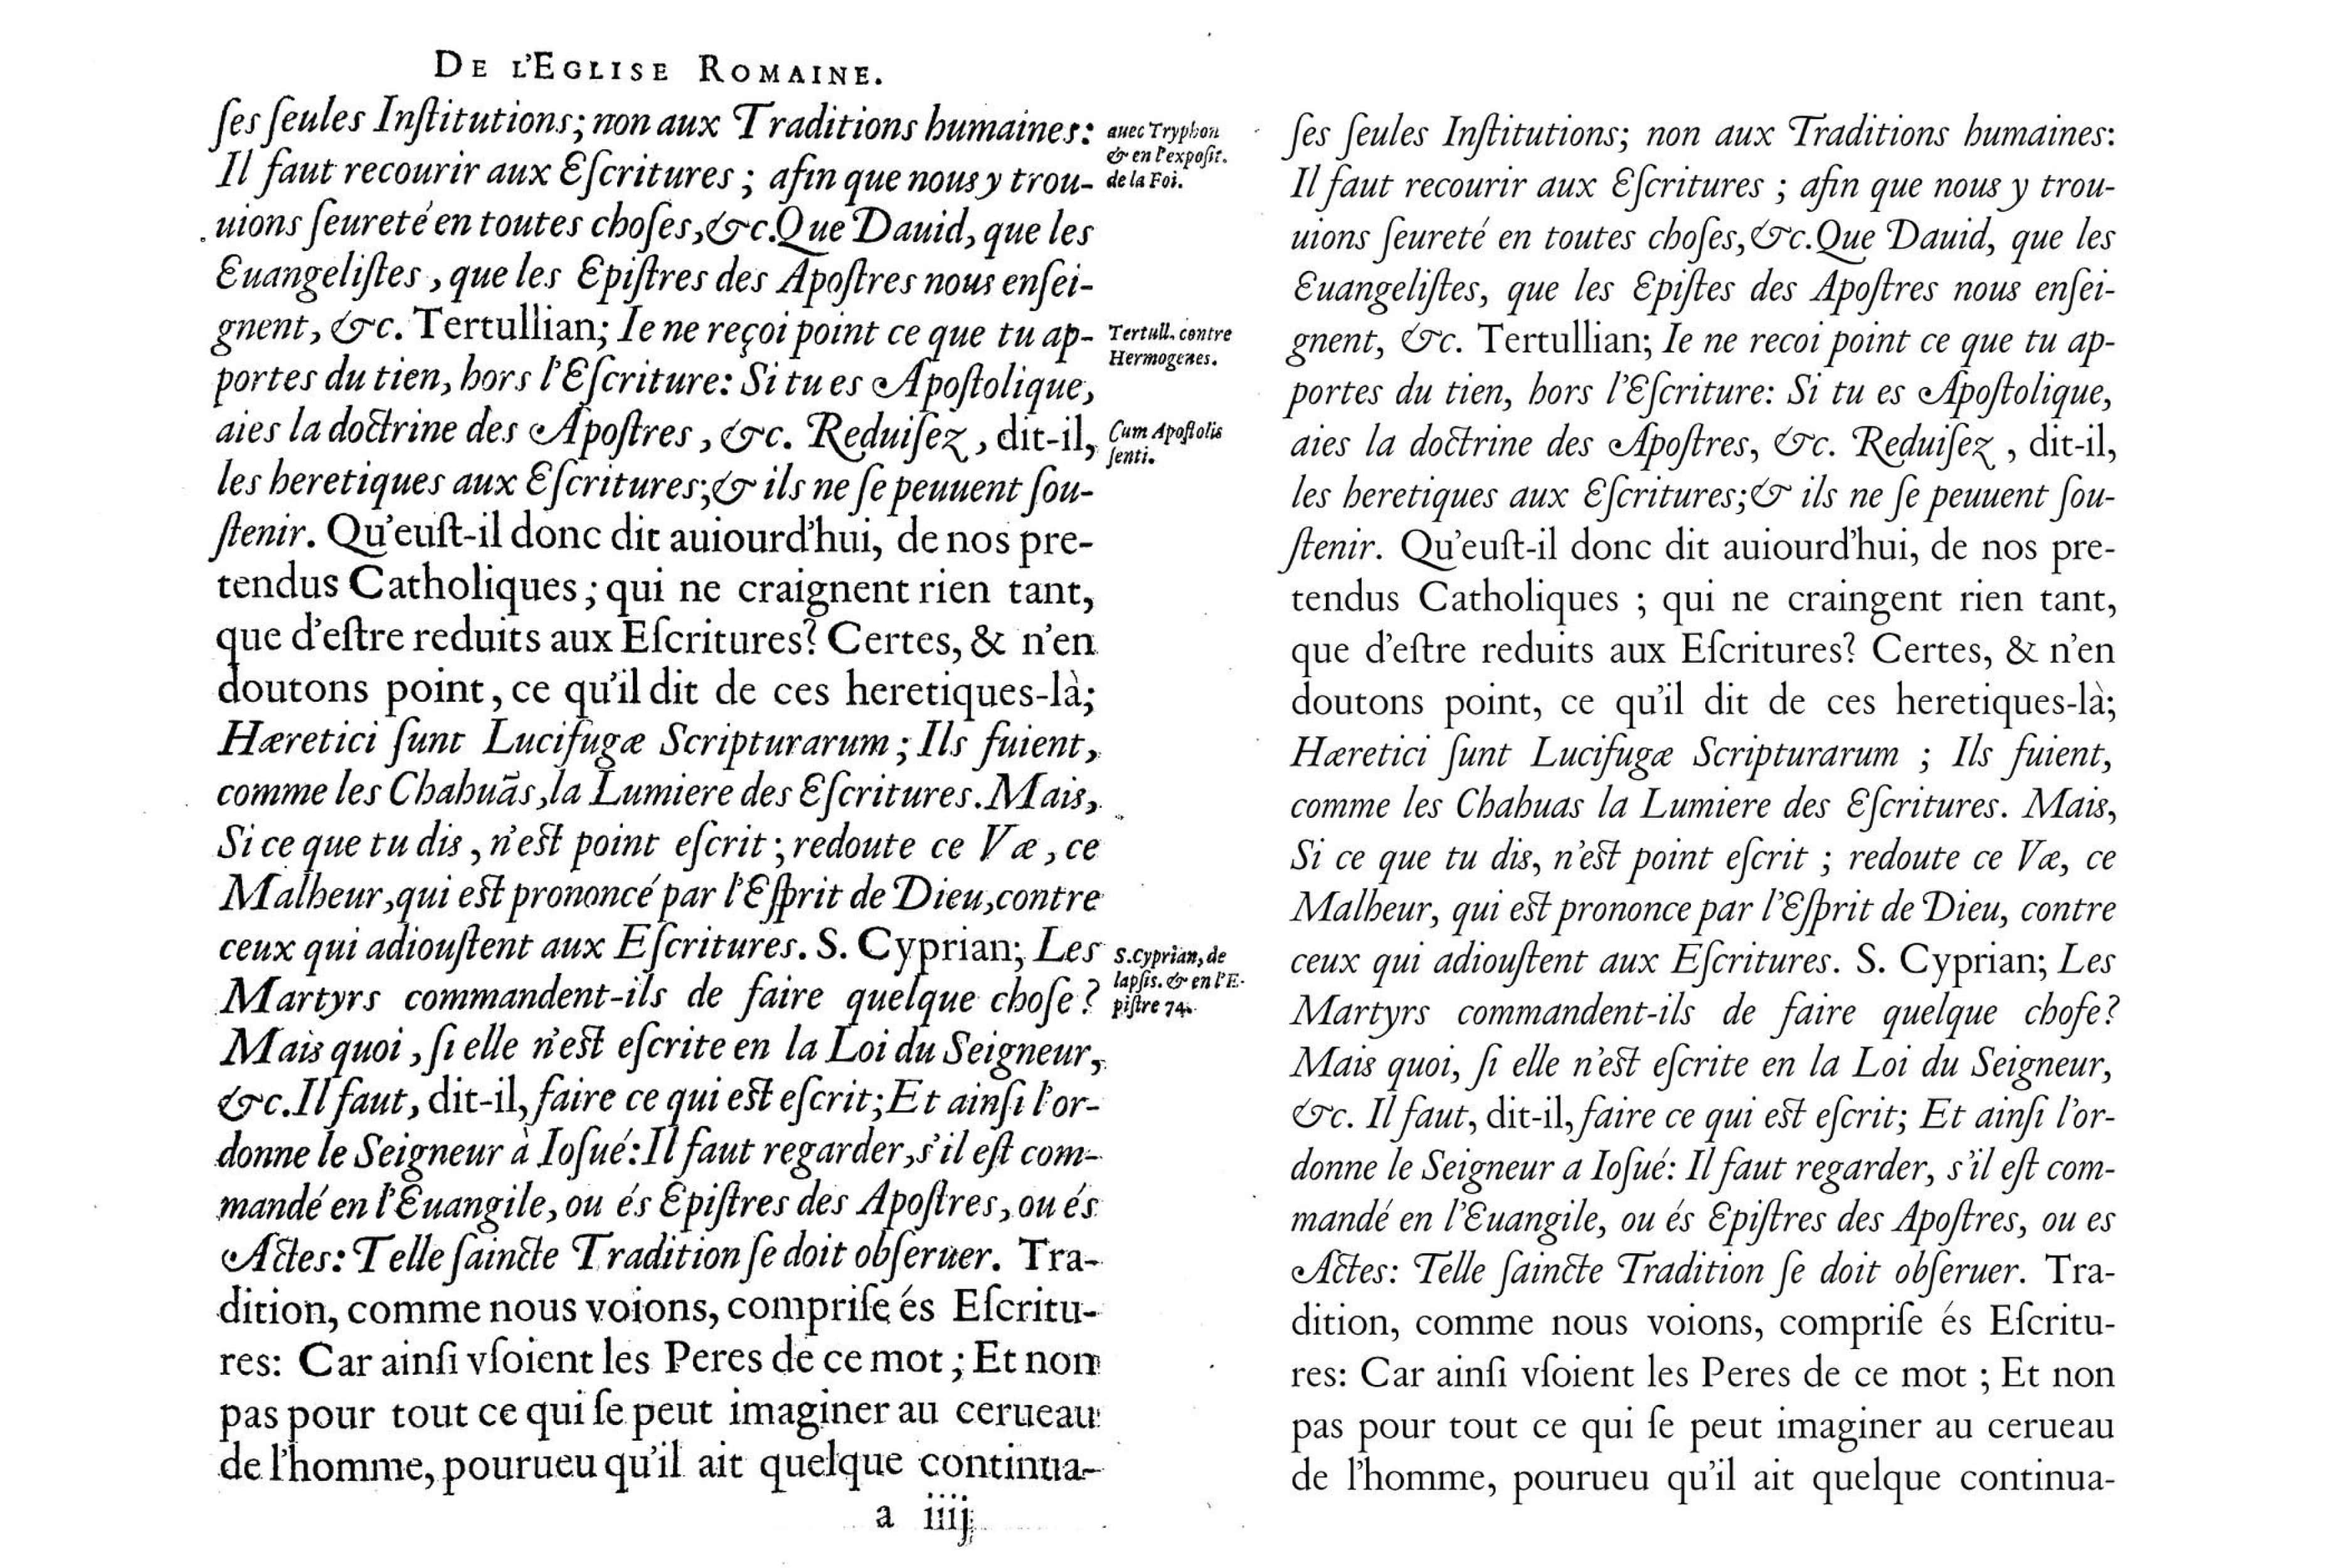 DE L'EGLISE ROMAINE.
ſes ſeules Inſtitutions; non aux Traditions humaines:
Il faut recourir aux Eſcritures ; afin que nous y trou-
uions ſeureté en toutes choſes,&c.Que Dauid, que les
Euangeliſtes , que les Epiſtres des Apoſtres nous enſei-
gnent, &c. Tertullian; Ie ne reçoi point ce que tu ap-
portes du tien, hors l'Eſcriture: Si tu es Apoſtolique,
aies la doctrine des Apoſtres , &c. Reduiſez , dit-il,
les heretiques aux Eſcritures;& ils ne ſe peuuent ſou-
ſtenir. Qu'euſt-il donc dit auiourd'hui, de nos pre-
tendus Catholiques ; qui ne craignent rien tant,
que d'eſtre reduits aux Eſcritures? Certes, & n'en
doutons point, ce qu'il dit de ces heretiques-là;
Hæretici ſunt Lucifugæ Scripturarum ; Ils fuient,
comme les Chahuãs,la Lumiere des Eſcritures. Mais,
Si ce que tu dis , n'est point eſcrit ; redoute ce Væ , ce
Malheur,qui est prononcé par l'Eſprit de Dieu,contre
ceux qui adiouſtent aux Eſcritures. S. Cyprian; Les
Martyrs commandent-ils de faire quelque choſe ?
Mais quoi , ſi elle n'est eſcrite en la Loi du Seigneur,
&c.Il faut, dit-il, faire ce qui est eſcrit;Et ainſi l'or-
donne le Seigneur à Ioſué:Il faut regarder,s'il eſt com-
mandé en l'Euangile, ou és Epiſtres des Apoſtres, ou és
Actes: Telle ſaincte Tradition ſe doit obſeruer. Tra-
dition, comme nous voions, compriſe és Eſcritu-
res: Car ainſi vſoient les Peres de ce mot ; Et non
pas pour tout ce qui ſe peut imaginer au cerueau
de l'homme, pourueu qu'il ait quelque continua-
a iiij
auec Tryphon
& en l'expoſit.
de la Foi.
Tertull. contre
Hermogenes.
Cum Apoſtolis
ſenti.
S.Cyprian, de
lapſis. & en l'E-
piſtre 74.
ſes ſeules Inſtitutions; non aux Traditions humaines:
Il faut recourir aux Eſcritures ; afin que nous y trou-
uions ſeureté en toutes choſes,&c.Que Dauid, que les
Euangeliſtes, que les Epiſtes des Apoſtres nous enſei-
gnent, &c. Tertullian; Ie ne recoi point ce que tu ap-
portes du tien, hors l'Eſcriture: Si tu es Apoſtolique,
aies la doctrine des Apoſtres, &c. Reduiſez , dit-il,
les heretiques aux Eſcritures;& ils ne ſe peuuent ſou-
ſtenir. Qu'euſt-il donc dit auiourd'hui, de nos pre-
tendus Catholiques ; qui ne craingent rien tant,
que d'eſtre reduits aux Eſcritures? Certes, & n'en
doutons point, ce qu'il dit de ces heretiques-là;
Hæretici ſunt Lucifugæ Scripturarum ; Ils fuient,
comme les Chahuas la Lumiere des Eſcritures. Mais,
Si ce que tu dis, n'est point eſcrit ; redoute ce Væ, ce
Malheur, qui est prononce par l'Eſprit de Dieu, contre
ceux qui adiouſtent aux Eſcritures. S. Cyprian; Les
Martyrs commandent-ils de faire quelque chofe?
Mais quoi, ſi elle n'est eſcrite en la Loi du Seigneur,
&c. Il faut, dit-il, faire ce qui est eſcrit; Et ainſi l'or-
donne le Seigneur a Ioſué: Il faut regarder, s'il eſt com-
mandé en l'Euangile, ou és Epiſtres des Apoſtres, ou es
Actes: Telle ſaincte Tradition ſe doit obſeruer. Tra-
dition, comme nous voions, compriſe és Eſcritu-
res: Car ainſi vſoient les Peres de ce mot ; Et non
pas pour tout ce qui ſe peut imaginer au cerueau
de l'homme, pourueu qu'il ait quelque continua-